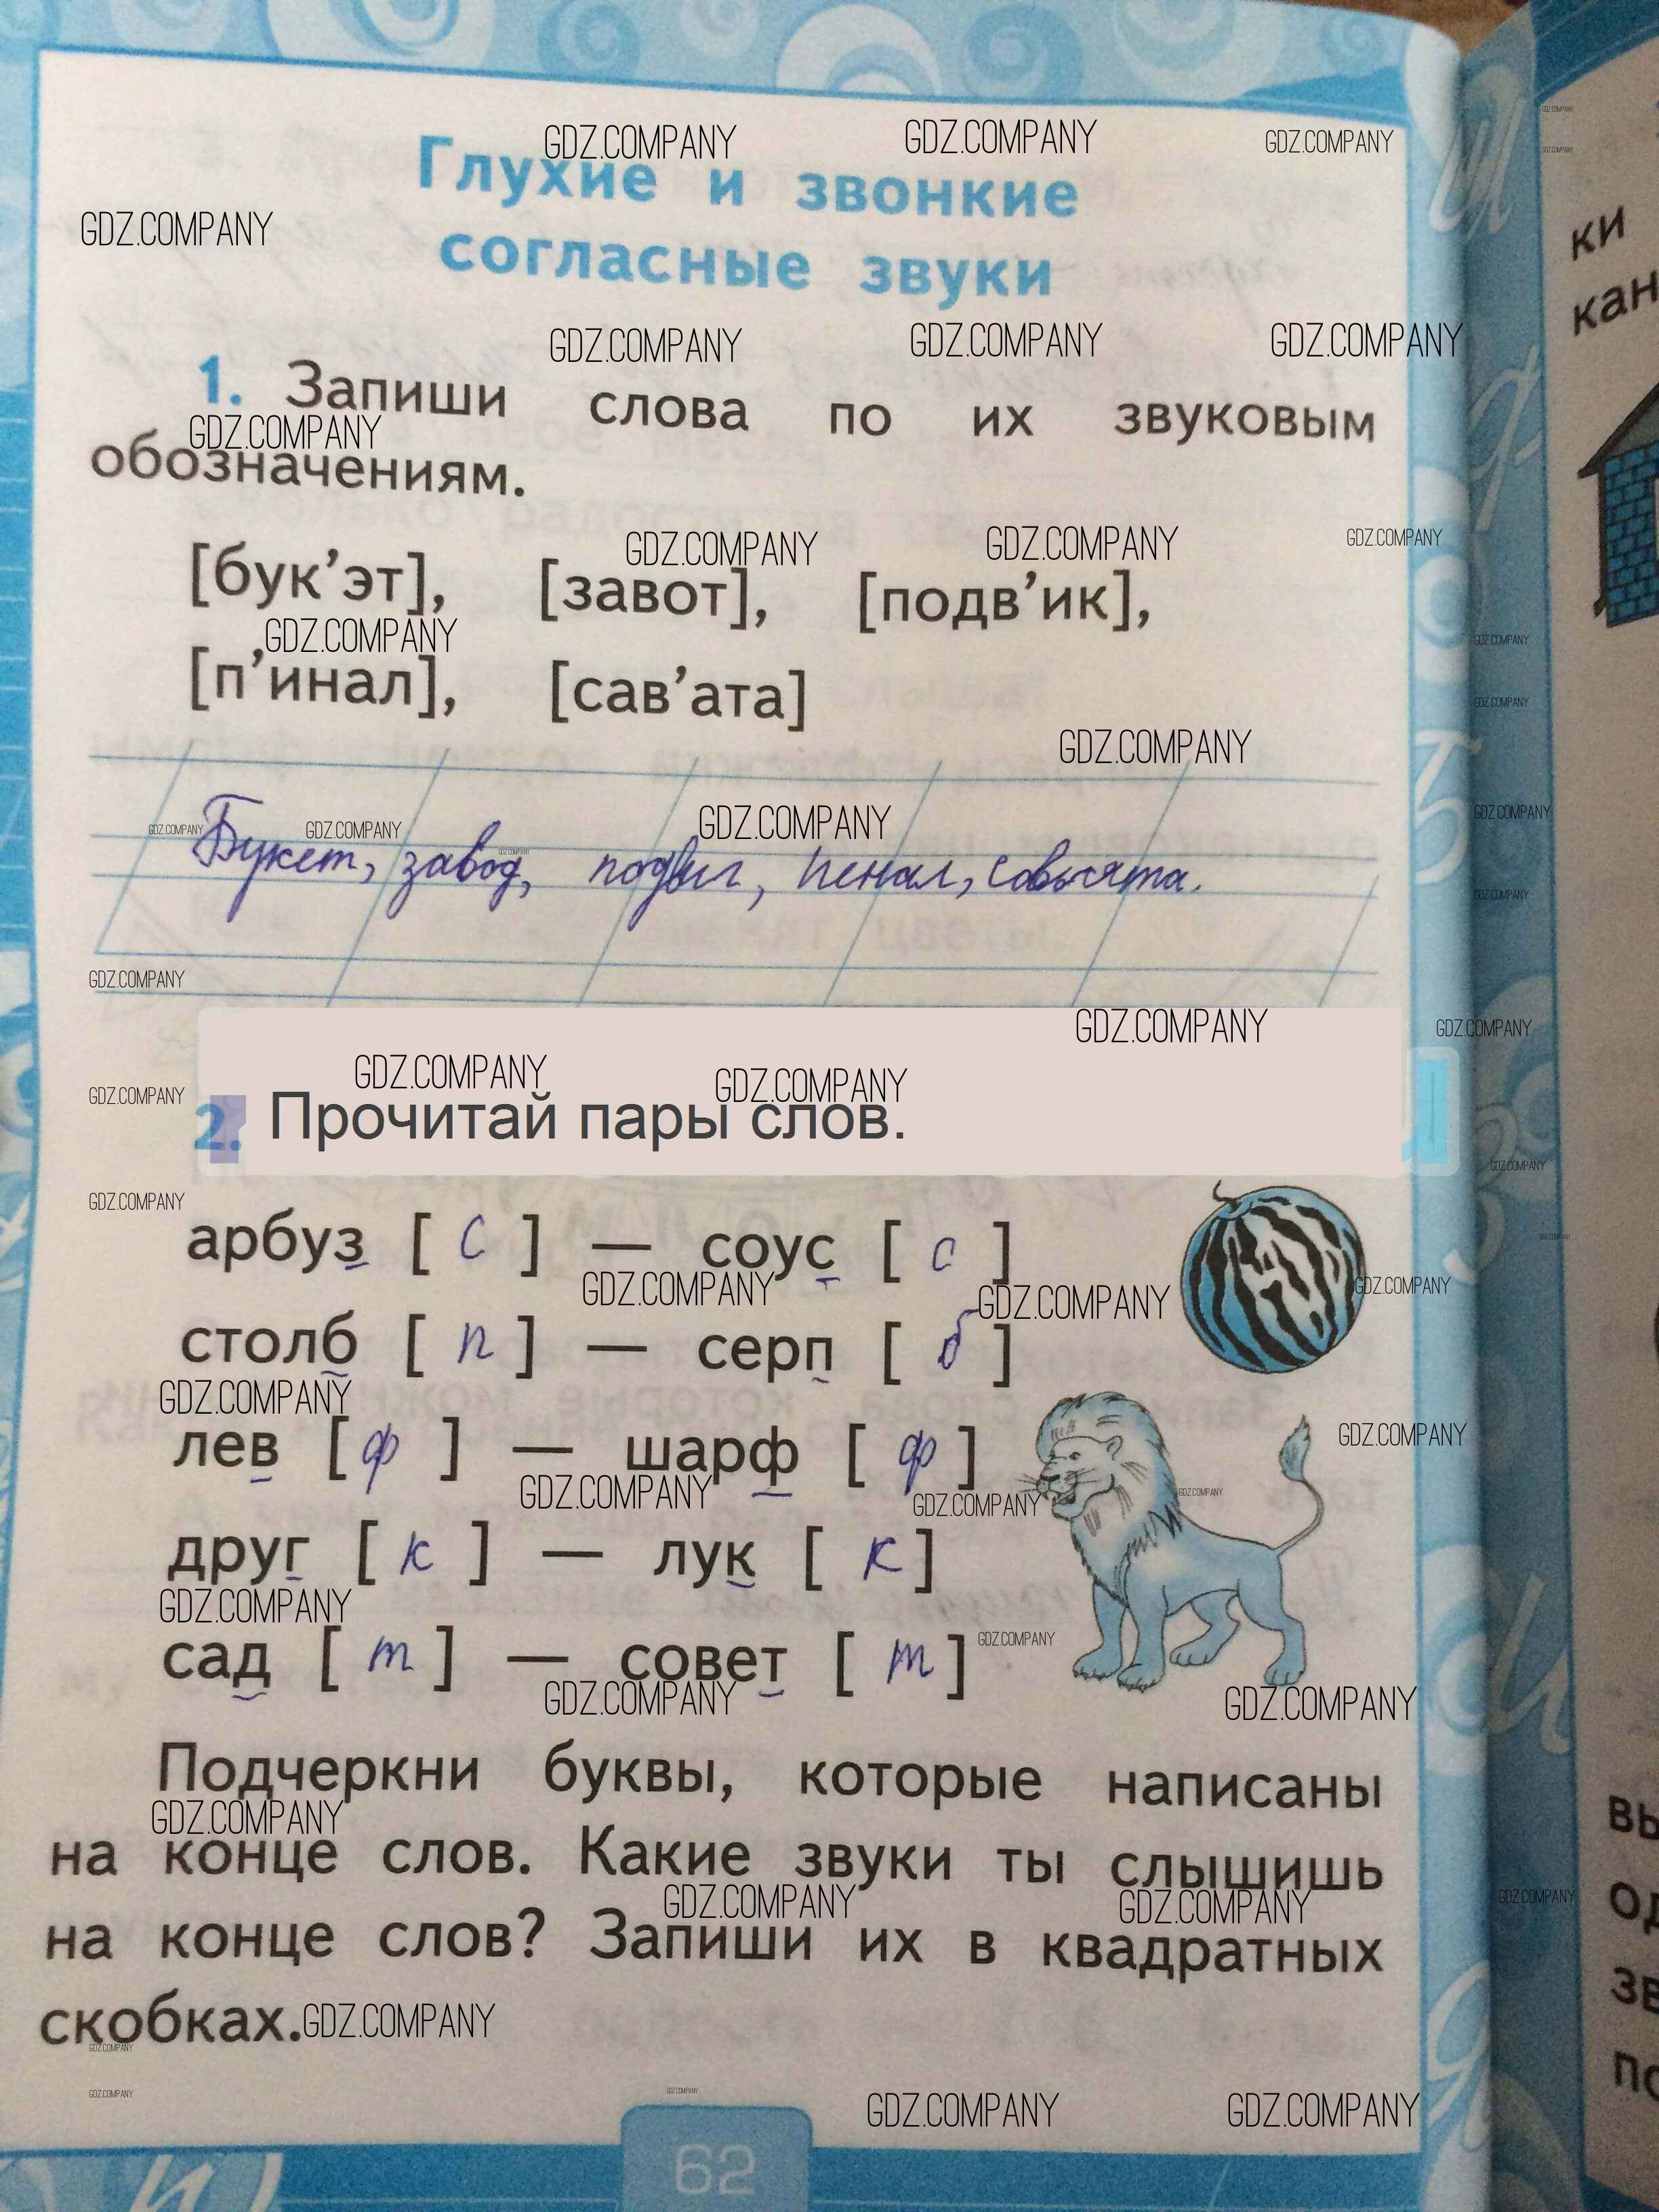 Глухие и звонкие
согласные звуки
1. Запиши слова по их звуковым
обозначениям.
[бук’эт], [завот], [подв’ик],
[п’инал], [сав’ата]
Букет, завод, подвиг, пенал, совята.
2. Прочитай пары слов.
арбуз [ с ] — соус [ с ]
столб [ п ] — серп [ б ]
лев [ ф ] — шарф [ ф ]
друг [ к ] — лук [ к ]
сад [ т ] — совет [ т ]
Подчеркни буквы, которые написаны
на конце слов. Какие звуки ты слышишь
на конце слов? Запиши их в квадратных
скобках.
62
GDZ.COMPANY
ки
кан